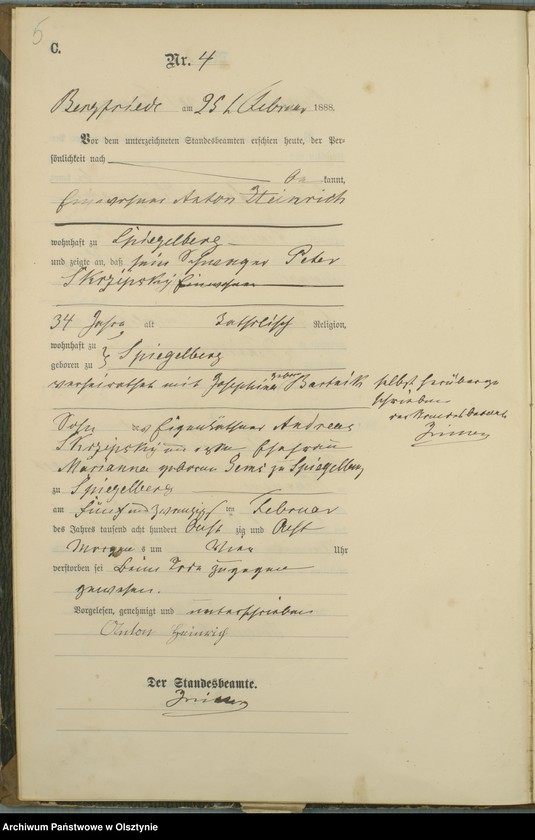 5
C.
Nr. 4
Bergfriede am 25t Februar 1888.
Vor dem unterzeichneten Standesbeamten erschien heute, der Per-
sönlichkeit nach
be kannt,
Einwohner Anton Heinrich
wohnhaft zu Spiegelberg
und zeigte an, daß sein Schwager Peter
Skrzipski Einwohner
34 Jahre alt katholisch Religion,
wohnhaft zu
geboren zu } Spiegelberg
verheirathet mit Josephine gebor Bartnik
selbst herüber ge
schrieben
der Standesbeamte
Sohn des Eigenkäthner Andreas
Skrzipski und dessen Ehefrau
Marianna geborne zu Spiegelberg
zu Spiegelberg
am fünf und zwanzigsten Februar
des Jahres tausend acht hundert Acht zig und Acht
Morgens um Vier Uhr
verstorben sei beim Tode zugegen
gewesen.
Vorgelesen, genehmigt und unterschrieben
Anton Heinrich
Der Standesbeamte.
Archiwum Państwowe w Olsztynie